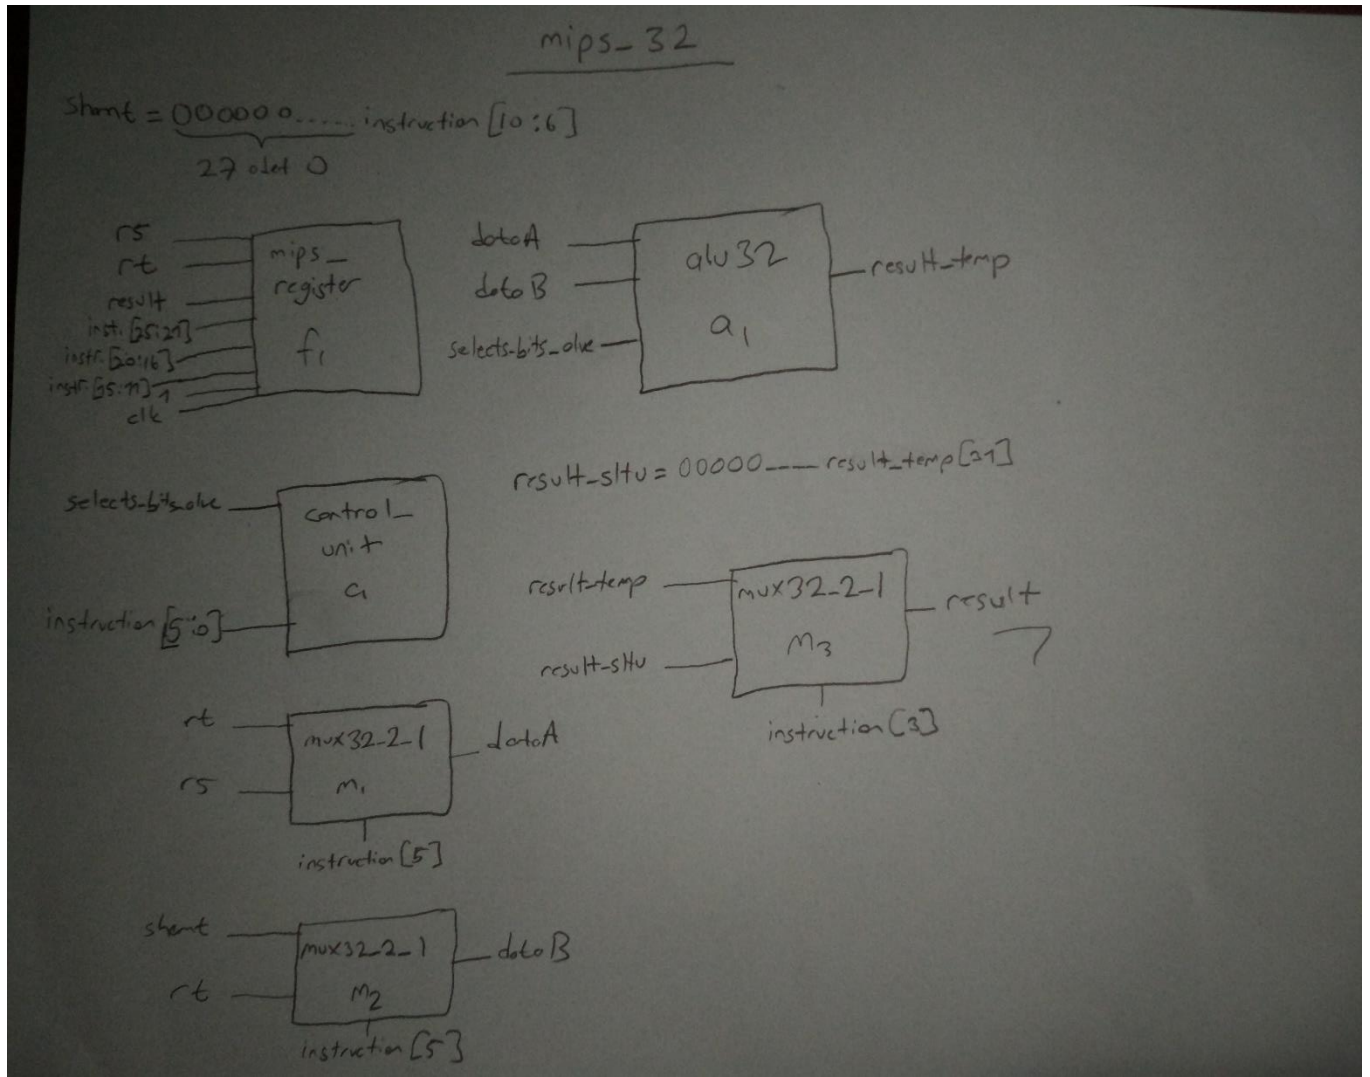 mips_32
shamt = 000000...... instruction [10:6]
27 adet 0
rs
rt
result
inst. [25:21]
instr. [20:16]
instr. [15:11]
1
clk
mips_
register
f1
dataA
dataB
selects-bits_alue
alu32
a1
result_temp
selects-bits_alue
instruction [5:0]
control_
unit
c1
result_sltu = 00000---- result_temp[31]
result_temp
result_sltu
mux32_2_1
m3
result
instruction [3]
rt
rs
mux32_2_1
m1
dataA
instruction [5]
shamt
rt
mux32_2_1
m2
dataB
instruction [5]